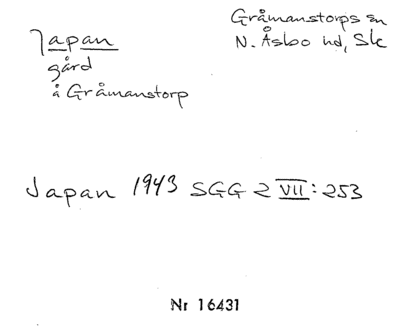 Japan
gård
å Gråmanstorp
Gråmanstorps sn
N. Åsbo hd, Sk
Japan 1943 SGG 2 VII: 253
Nr 16431